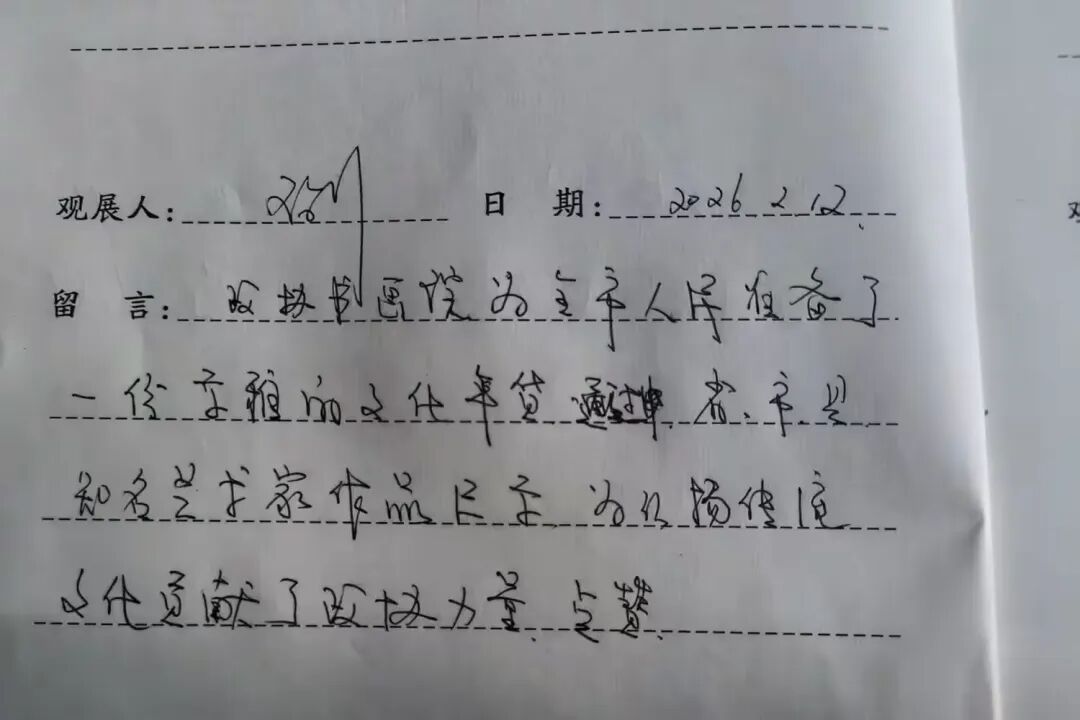 观展人: 日 期: 2026.2.12.
留 言: 政协书画院为全市人民准备了
一份高雅的文化年货 通过 省、市、县
知名艺术家作品展示 为弘扬传统
文化贡献了政协力量. 点赞.